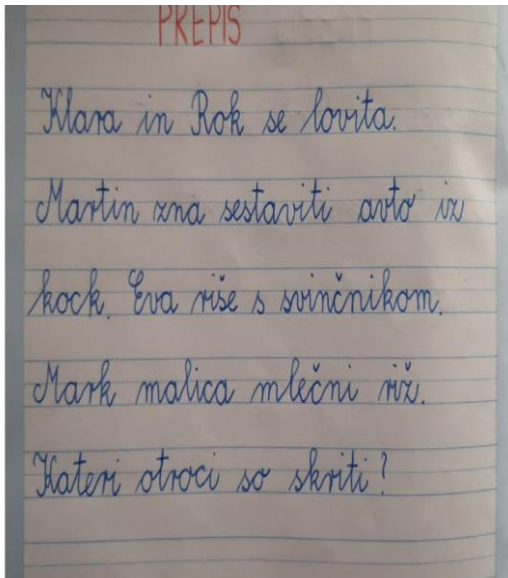 PREPIS
Klara in Rok se lovita.
Martin zna sestaviti avto iz
kock. Eva riše s svinčnikom.
Mark malica mlečni riž.
Kateri otroci so skriti?